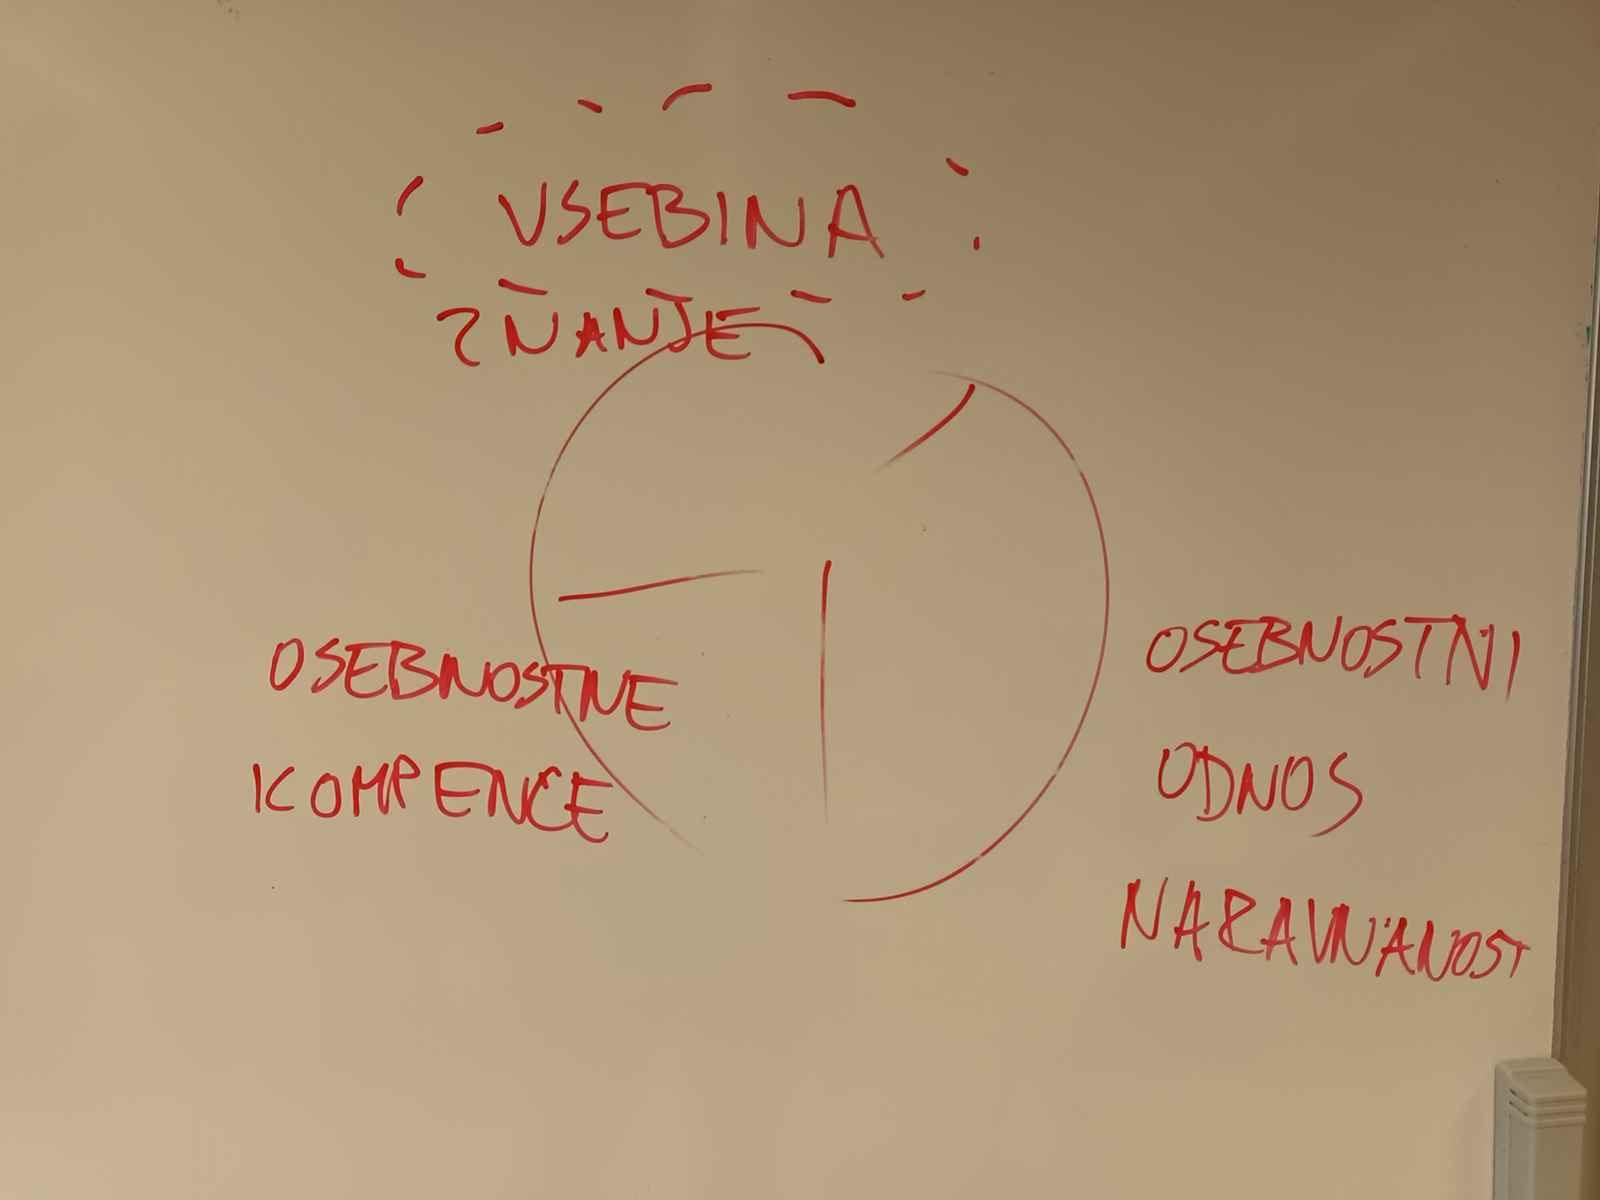 VSEBINA
ZNANJE
OSEBNOSTNE
KOMPENCE
OSEBNOSTNI
ODNOS
NARAVNANOST